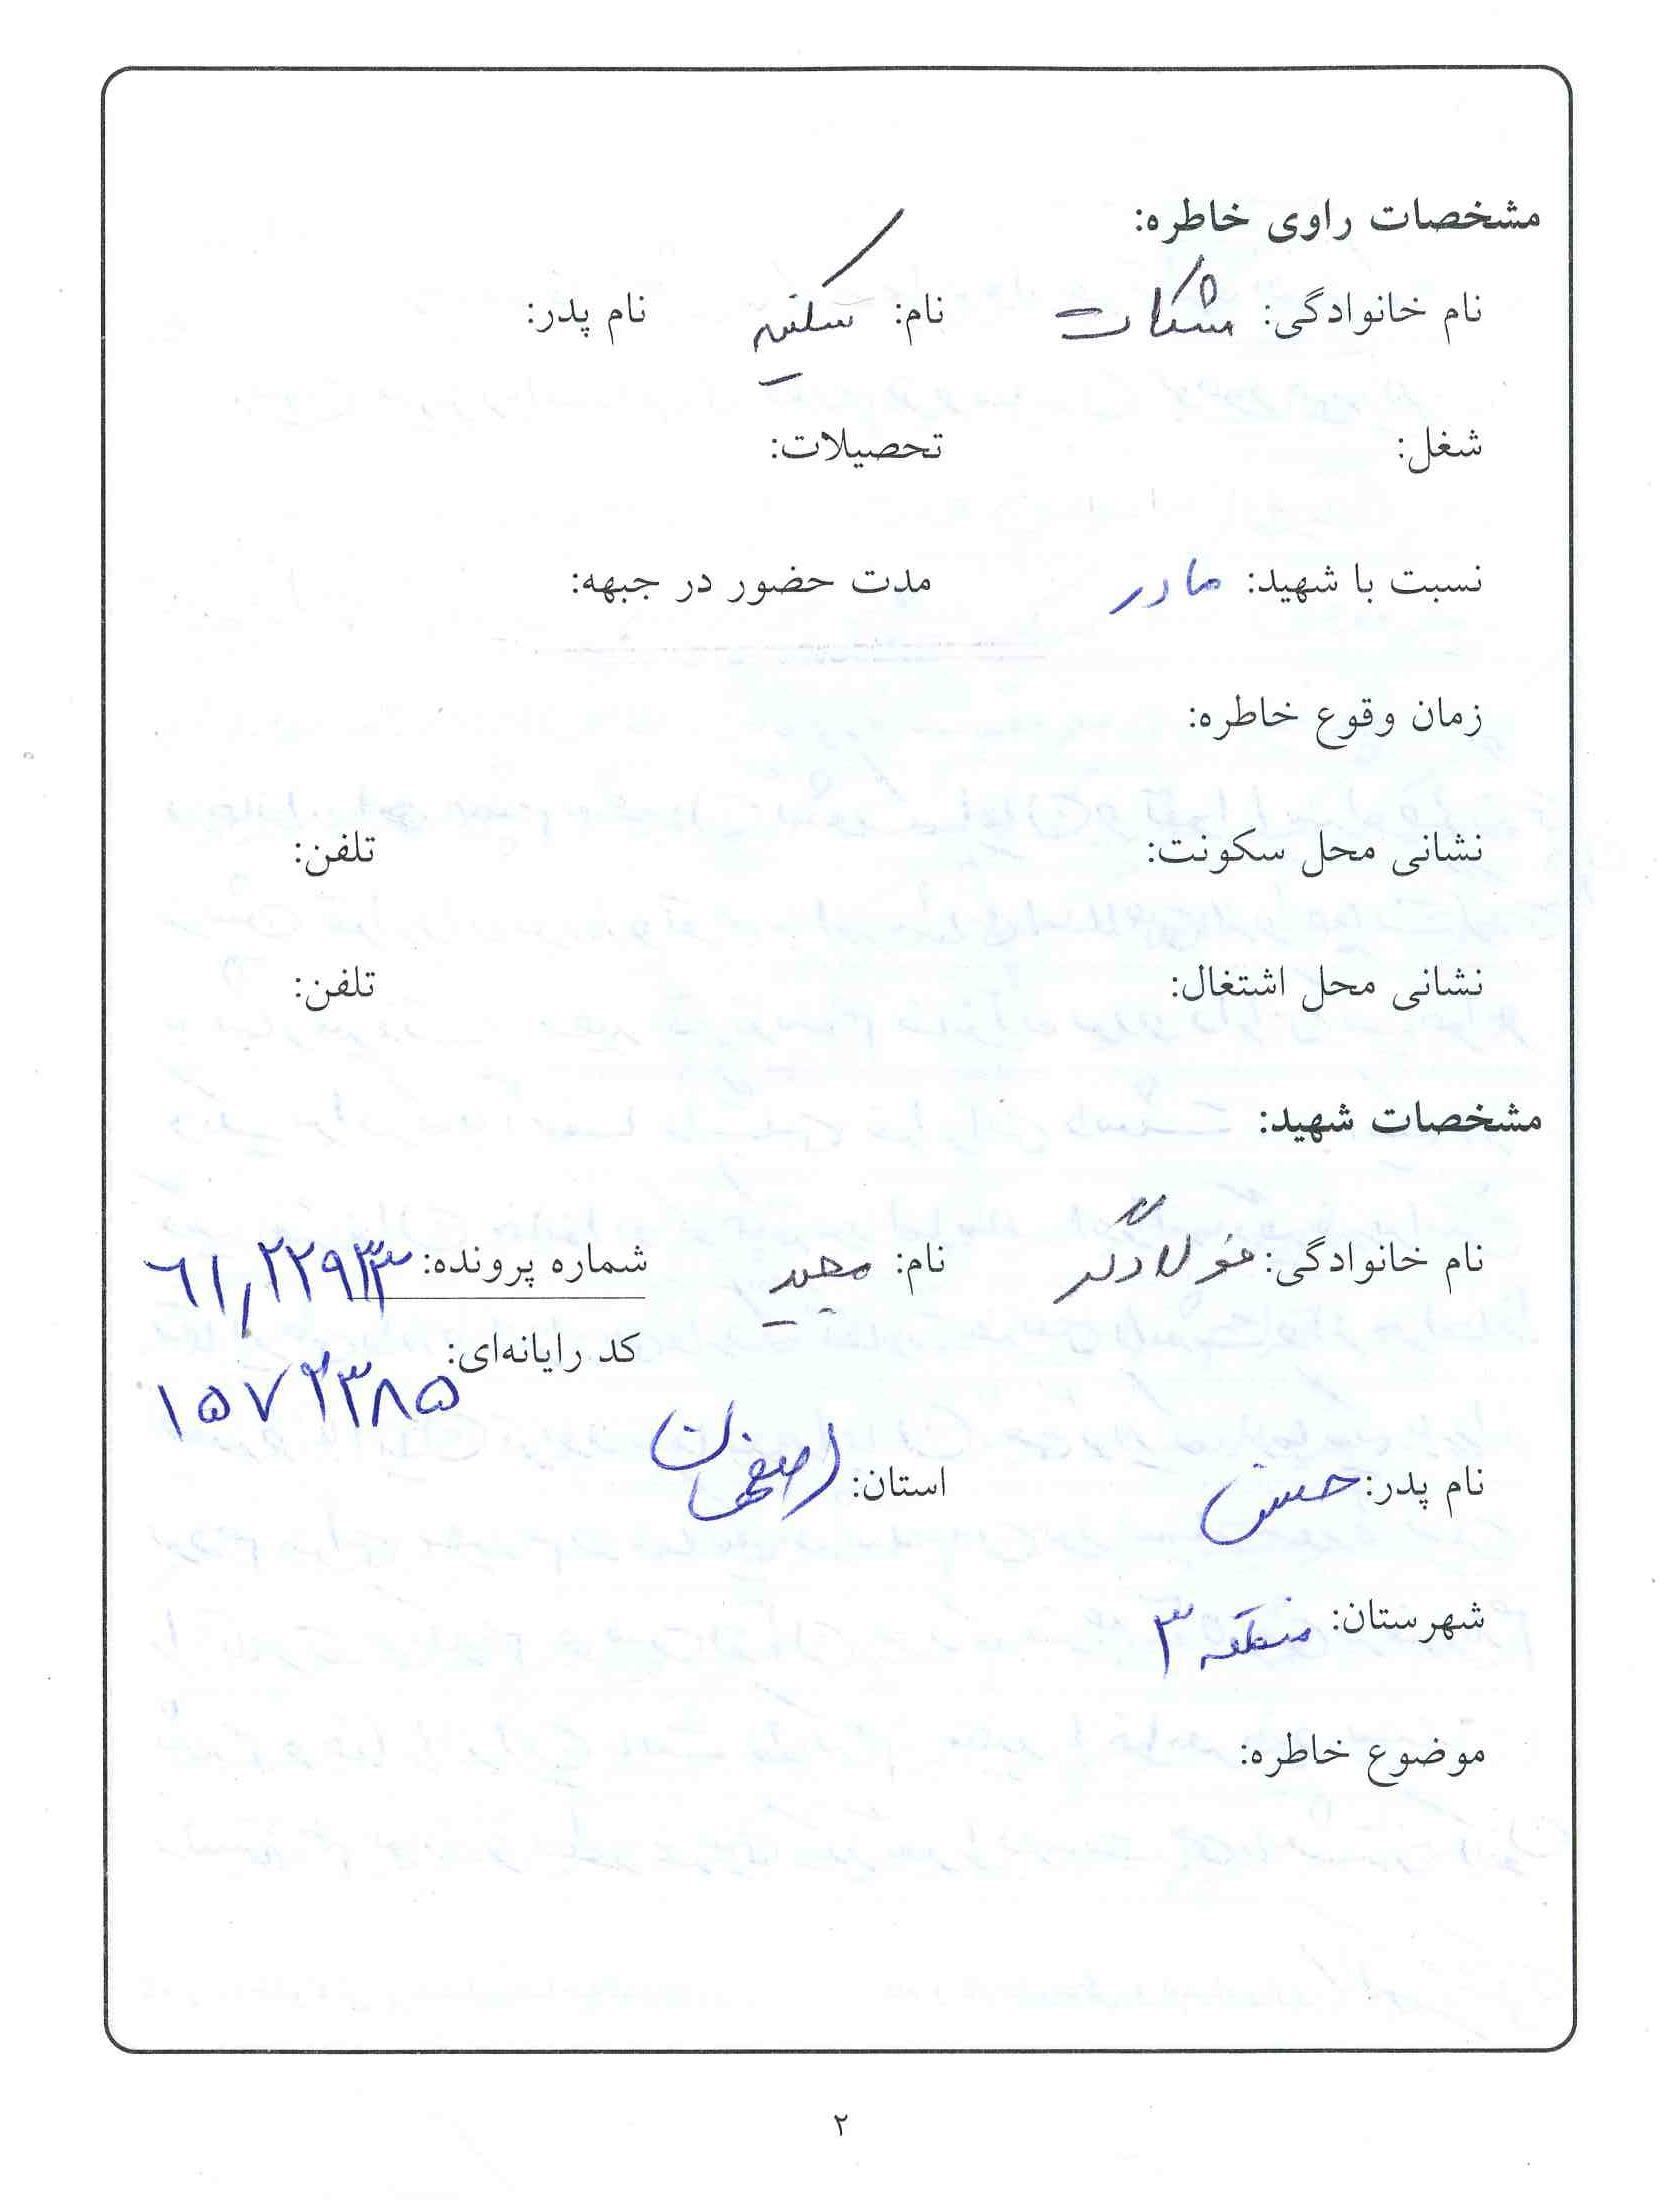 مشخصات راوی خاطره:
نام خانوادگی: مشکات نام: سکینه نام پدر:
شغل: تحصیلات:
نسبت با شهید: مادر مدت حضور در جبهه:
زمان وقوع خاطره:
نشانی محل سکونت: تلفن:
نشانی محل اشتغال: تلفن:
مشخصات شهید:
نام خانوادگی: فولادگر نام: مجید شماره پرونده:
کد رایانه‌ای: ۱۵۷۲۳۸۵
نام پدر: حسن استان: اصفهان
شهرستان: منطقه ۳
موضوع خاطره:
۲